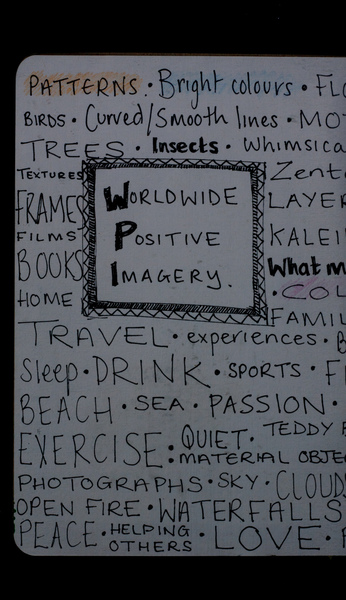 PATTERNS. Bright colours. FLO
BIRDS. Curved/Smooth lines. MOT
TREES. Insects. Whimsica
TEXTURES Zent
FRAMES WORLDWIDE LAYER
FILMS POSITIVE KALEI
BOOKS IMAGERY. What m
HOME . COL
FAMIL
TRAVEL. experiences. B
Sleep. DRINK. SPORTS. F
BEACH. SEA. PASSION.
EXERCISE: QUIET. TEDDY
MATERIAL OBJE
PHOTOGRAPHS. SKY. CLOUD
OPEN FIRE. WATERFALLS
PEACE. HELPING OTHERS. LOVE.